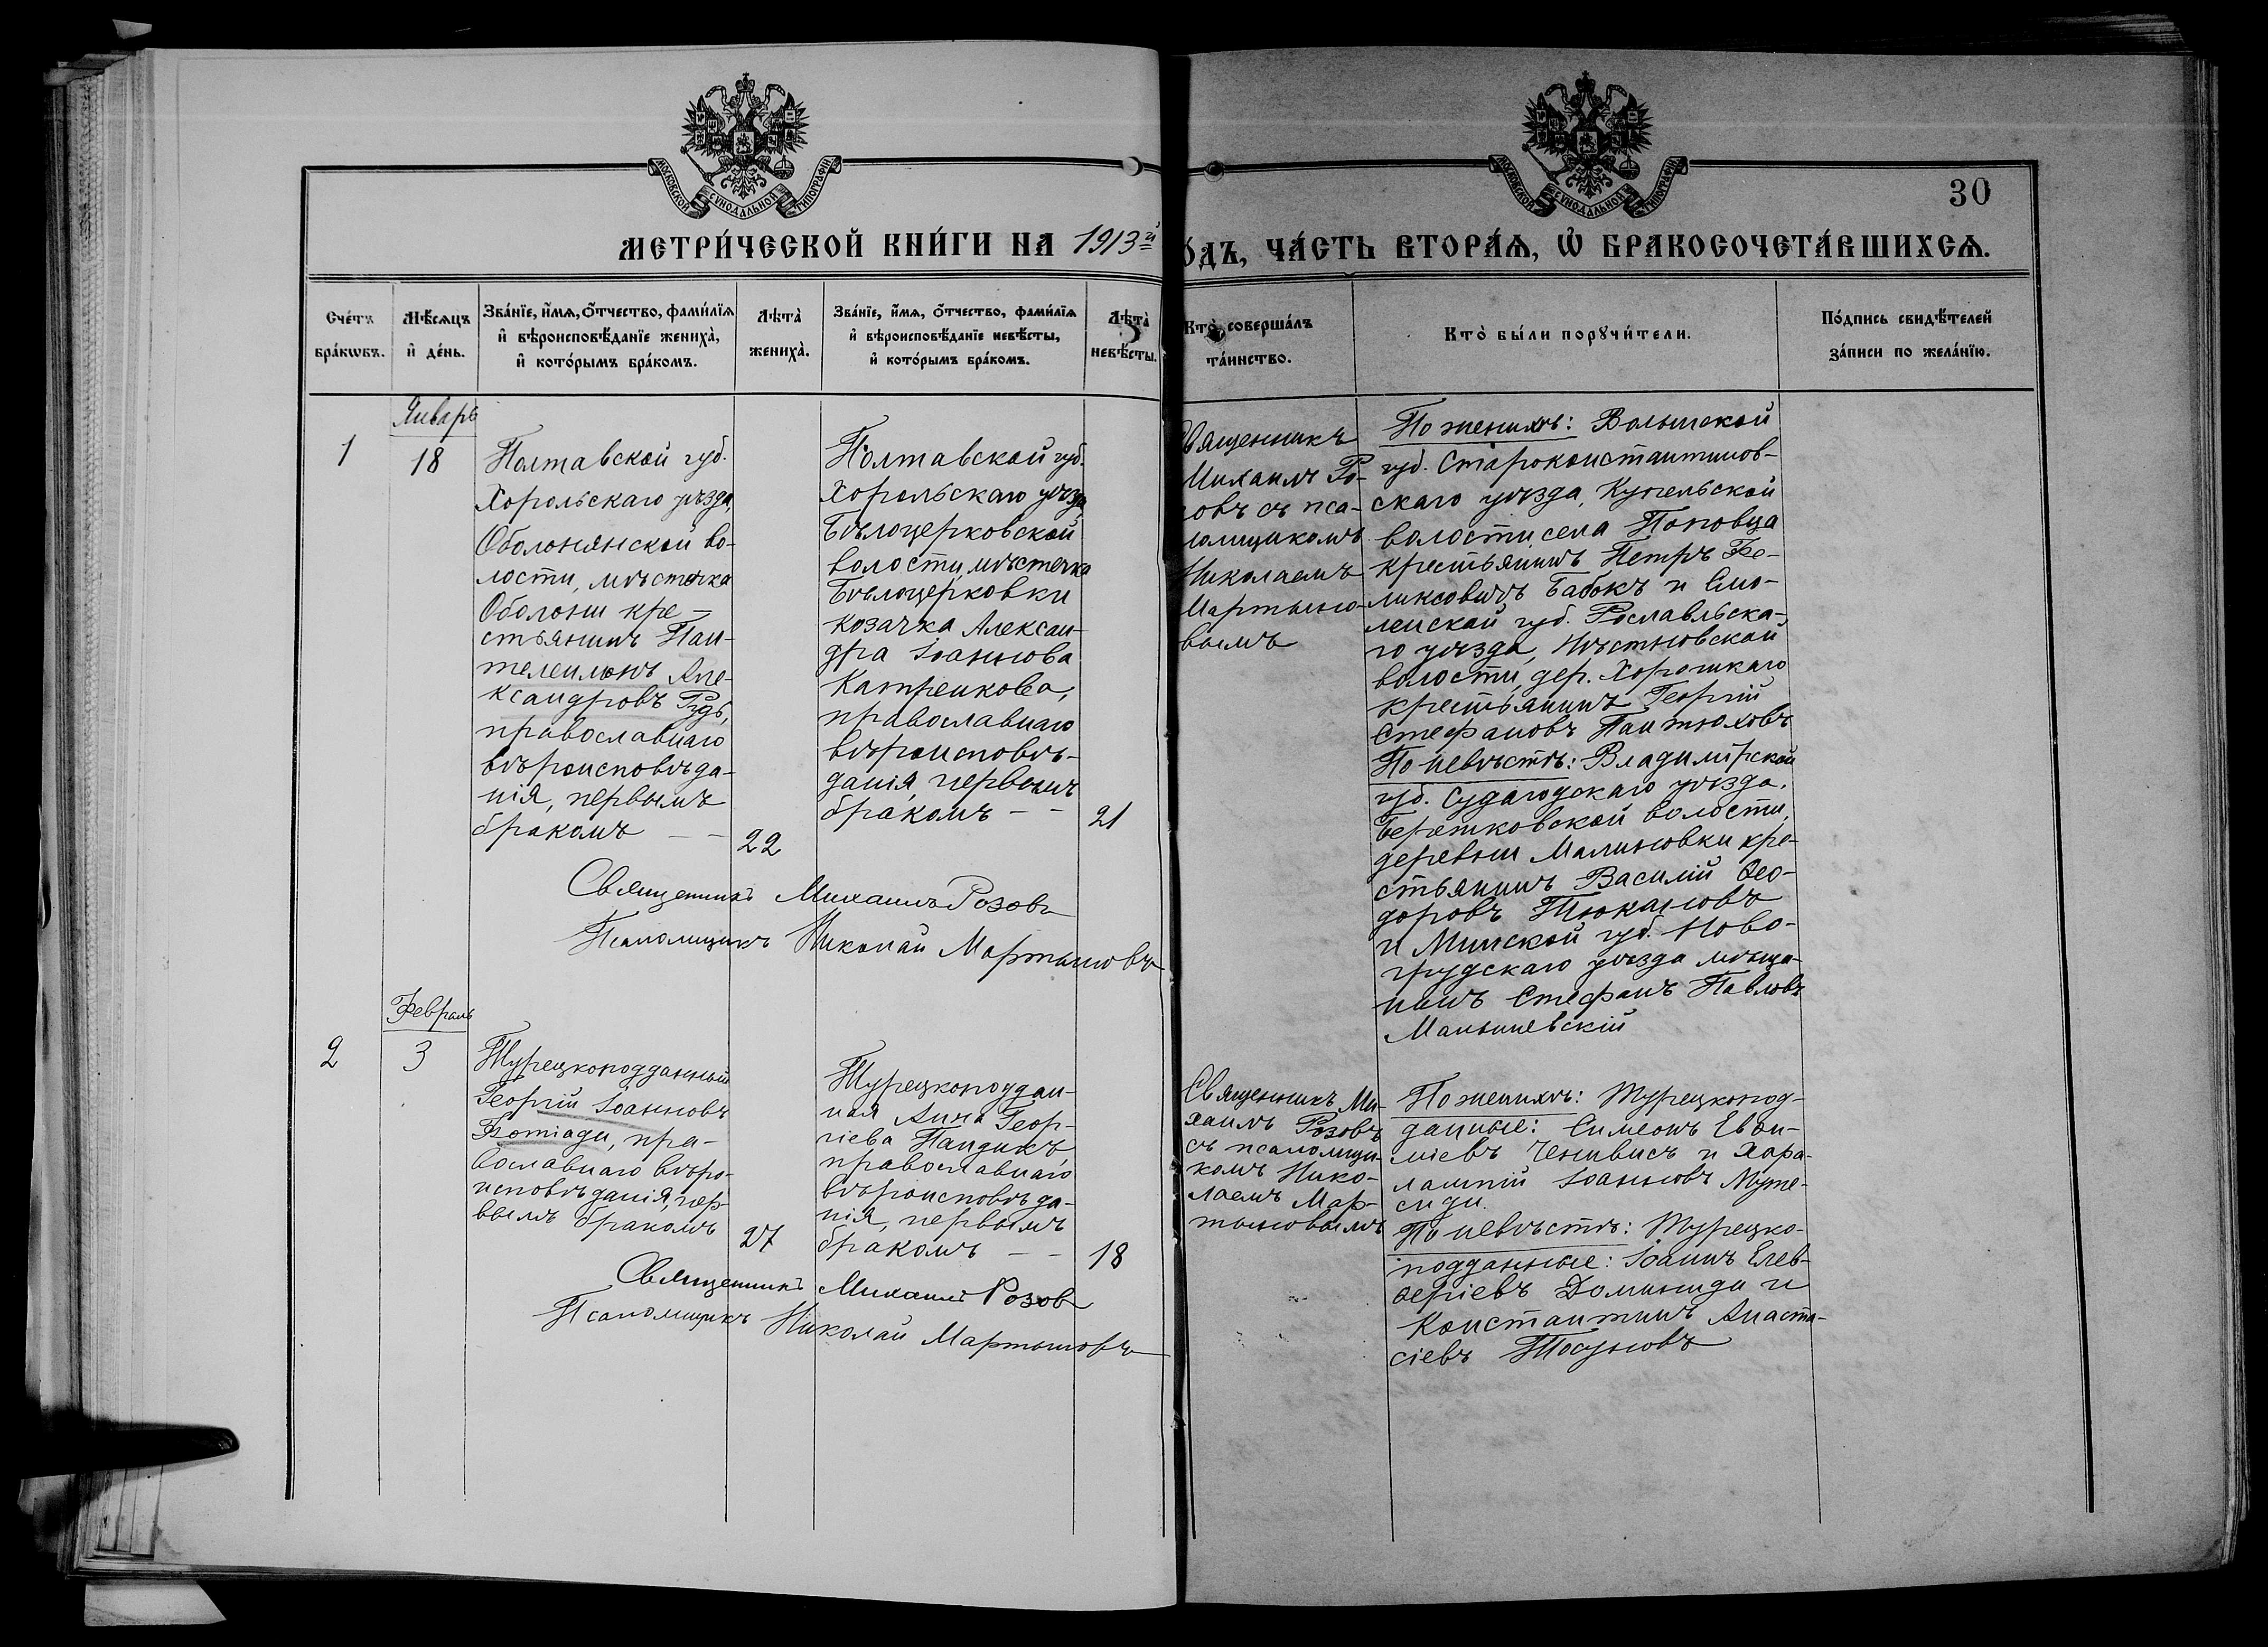 МОСКОВСКОЙ СѴНОДАЛЬНОЙ ТИПОГРАФІИ
МОСКОВСКОЙ СѴНОДАЛЬНОЙ ТИПОГРАФІИ
30
МЕТРИ́ЧЕСКОЙ КНИ́ГИ НА 1913й
ОДЪ, ЧА́СТЬ ВТОРА́Ѧ, Ѽ БРАКОСОЧЕТА́ВШИХСѦ.
Сче́тъ
бра́кѡвъ.
Мѣ́сѧцъ
и҆ де́нь.
Зва́нїе, и҆́мѧ, ѻ҆́тчество, фами́лїѧ
и҆ вѣроисповѣ́данїе жениха̀,
и҆ кото́рымъ бра́комъ.
Лѣта̀
жениха̀.
Зва́нїе, и҆́мѧ, ѻ҆́тчество, фами́лїѧ
и҆ вѣроисповѣ́данїе невѣ́сты,
и҆ кото́рымъ бра́комъ.
Лѣта̀
невѣ́сты.
Кто̀ соверша́лъ
та́инство.
Кто̀ бы́ли порꙋчи́тели.
По́дпись свидѣ́телей
за́писи по жела́нїю.
Январь
1
18
Полтавской губ.
Хорольскаго уѣзда,
Оболонянской во-
лости, мѣстечка
Оболони кре-
стьянинъ Пан-
телеимонъ Але-
ксандровъ Рудь,
православнаго
вѣроисповѣда-
нія, первымъ
бракомъ - -
22
Полтавской губ.
Хорольскаго уѣзда
Бѣлоцерковской
волости, мѣстечка
Бѣлоцерковки
козачка Алексан-
дра Іоаннова
Катренкова,
православнаго
вѣроисповѣ-
данія, первымъ
бракомъ - -
21
Священникъ
Михаилъ Ро-
зовъ съ пса-
ломщикомъ
Николаемъ
Мартыно-
вымъ
По женихѣ: Волынской
губ. Староконстантинов-
скаго уѣзда, Купельской
волости села Поповца
крестьянинъ Петръ Фе-
ликсовичъ Бабокъ и Смо-
ленской губ. Рославльска-
го уѣзда,
волости, дер. Хорошкаго
крестьянинъ Георгій
Стефановъ Пантюховъ
По невѣстѣ: Владимірской
губ. Судогодскаго уѣзда,
Бережковской волости,
деревни Малиновки кре-
стьянинъ Василій Ѳео-
доровъ Тюкаловъ
и Минской губ. Ново-
грудскаго уѣзда мѣща-
нинъ Стефанъ Павловъ
Священникъ Михаилъ Розовъ
Псаломщикъ Николай Мартыновъ
Февраль
2
3
Турецкоподданный
Георгій Іоанновъ
Фотіади, пра-
вославнаго вѣро-
исповѣданія, пер-
вымъ бракомъ
27
Турецкоподдан-
ная Анна Геор-
гіева Пандикъ,
православнаго
вѣроисповѣда-
нія, первымъ
бракомъ - -
18
Священникъ Ми-
хаилъ Розовъ
съ псаломщи-
комъ Нико-
лаемъ Мар-
тыновымъ
По женихѣ: Турецкопод-
данные: Симеонъ Еван-
гіевъ и Хара-
лампій Іоанновъ Муте-
сиди.
По невѣстѣ: Турецко-
подданные: Іоаннъ Елев-
ѳеріевъ Доминиди и
Константинъ Анаста-
сіевъ Тосуновъ
Священникъ Михаилъ Розовъ
Псаломщикъ Николай Мартыновъ